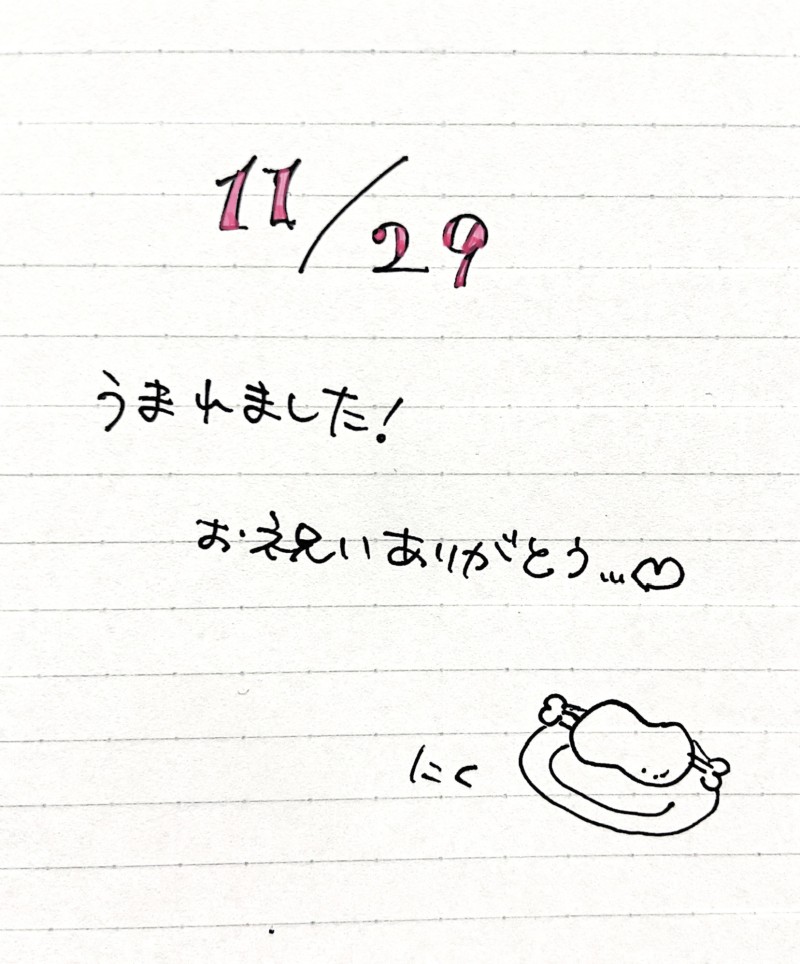 11/29
うまれました!
お祝いありがとう...♡
にく